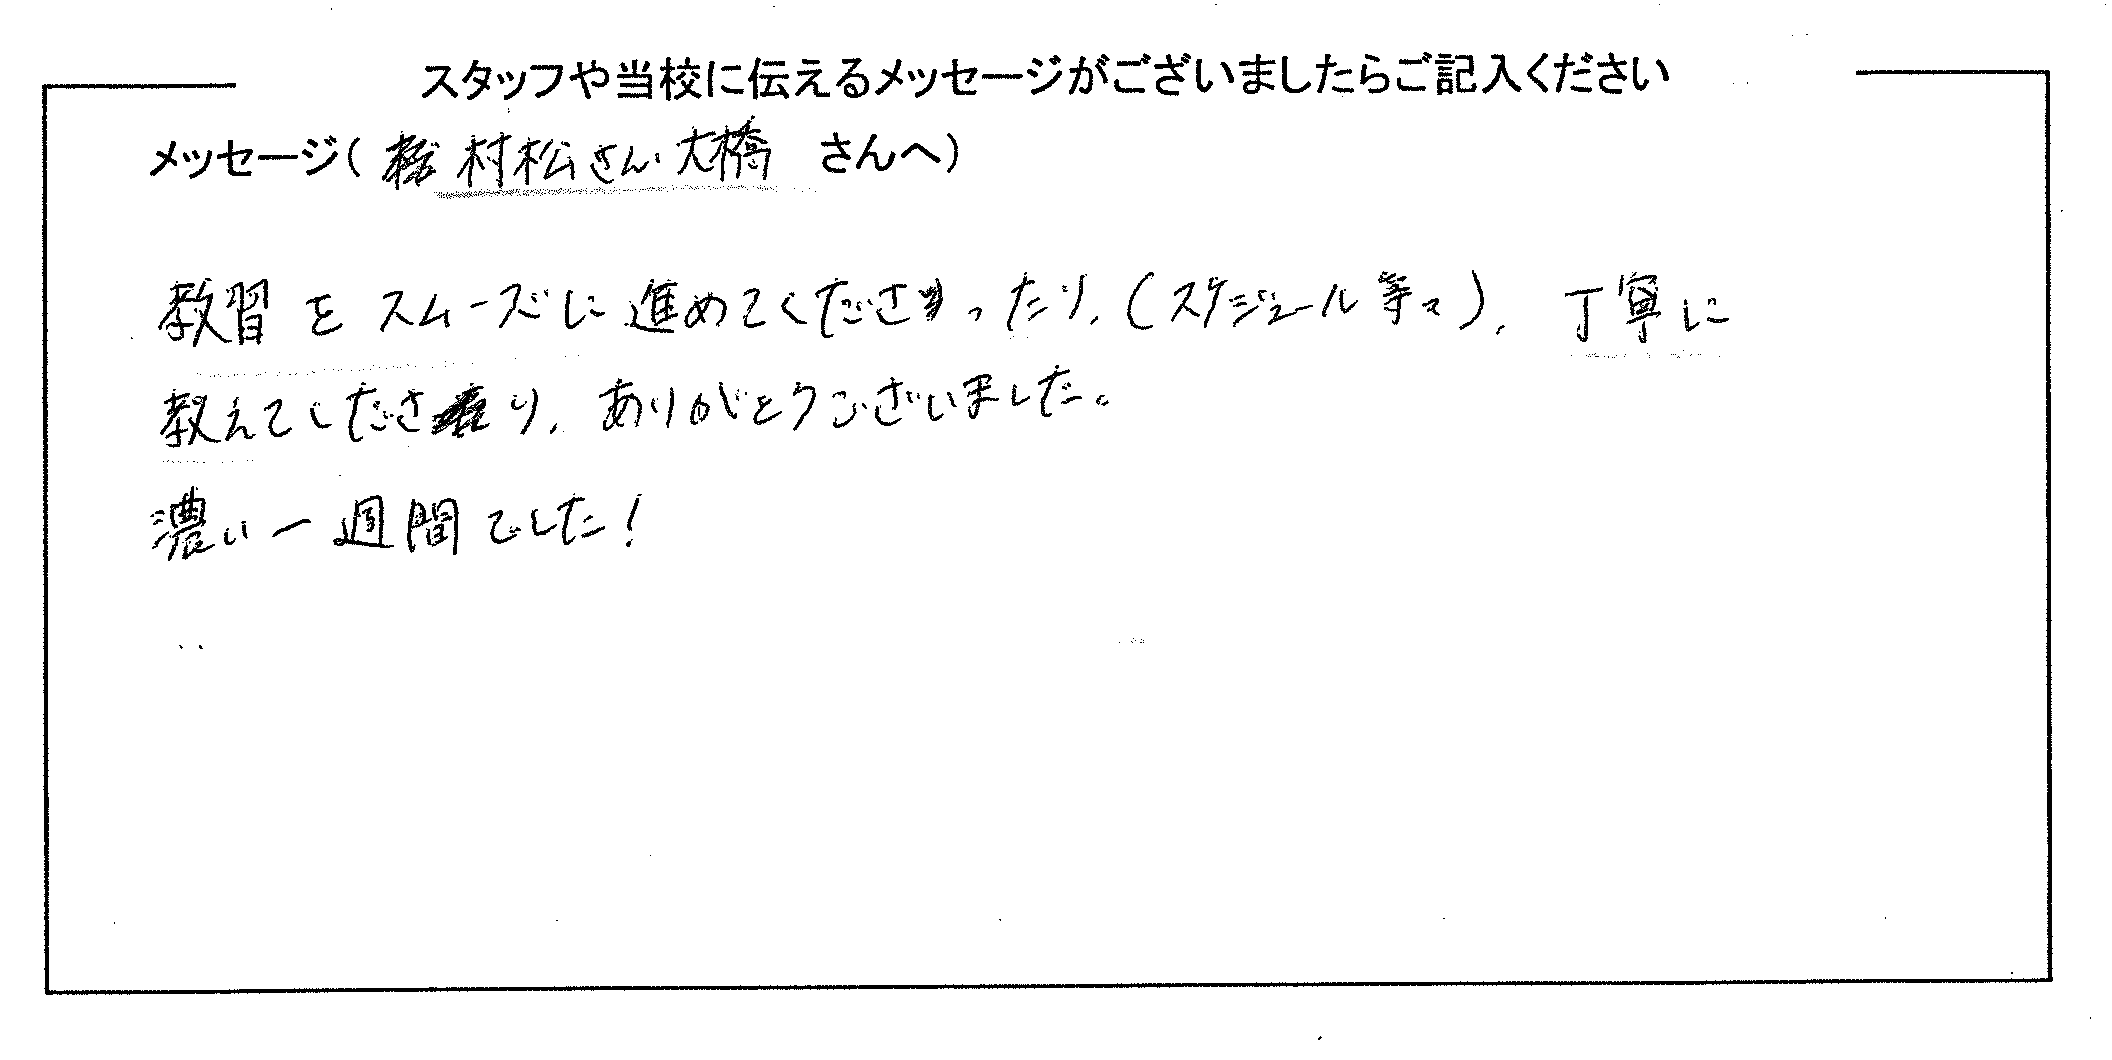 スタッフや当校に伝えるメッセージがございましたらご記入ください
メッセージ( 村松さん 大橋 さんへ)
教習をスムーズに進めてくださったり、(スケジュール等々)、丁寧に
教えてくださり、ありがとうございました。
濃い一週間でした!